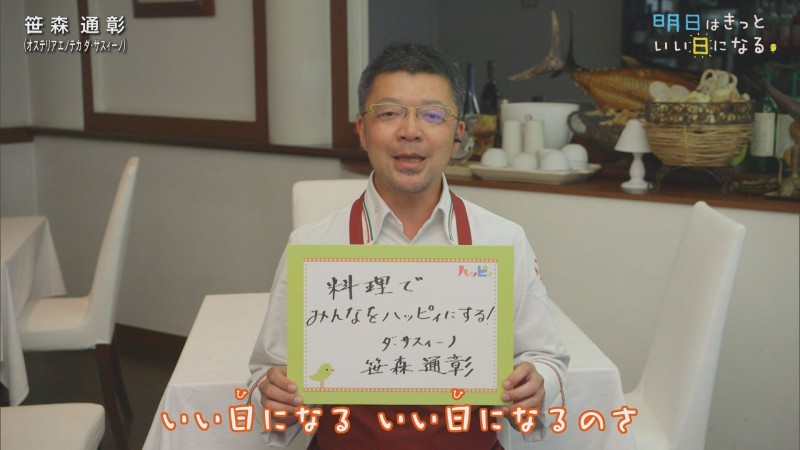 笹森 通彰
(オステリアエノテカ ダ・サスィーノ)
明日はきっと
いい日になる
ハッピィ
料理で
みんなをハッピィにする!
ダ・サスィーノ
笹森 通彰
いい日になる いい日になるのさ
ひ ひ